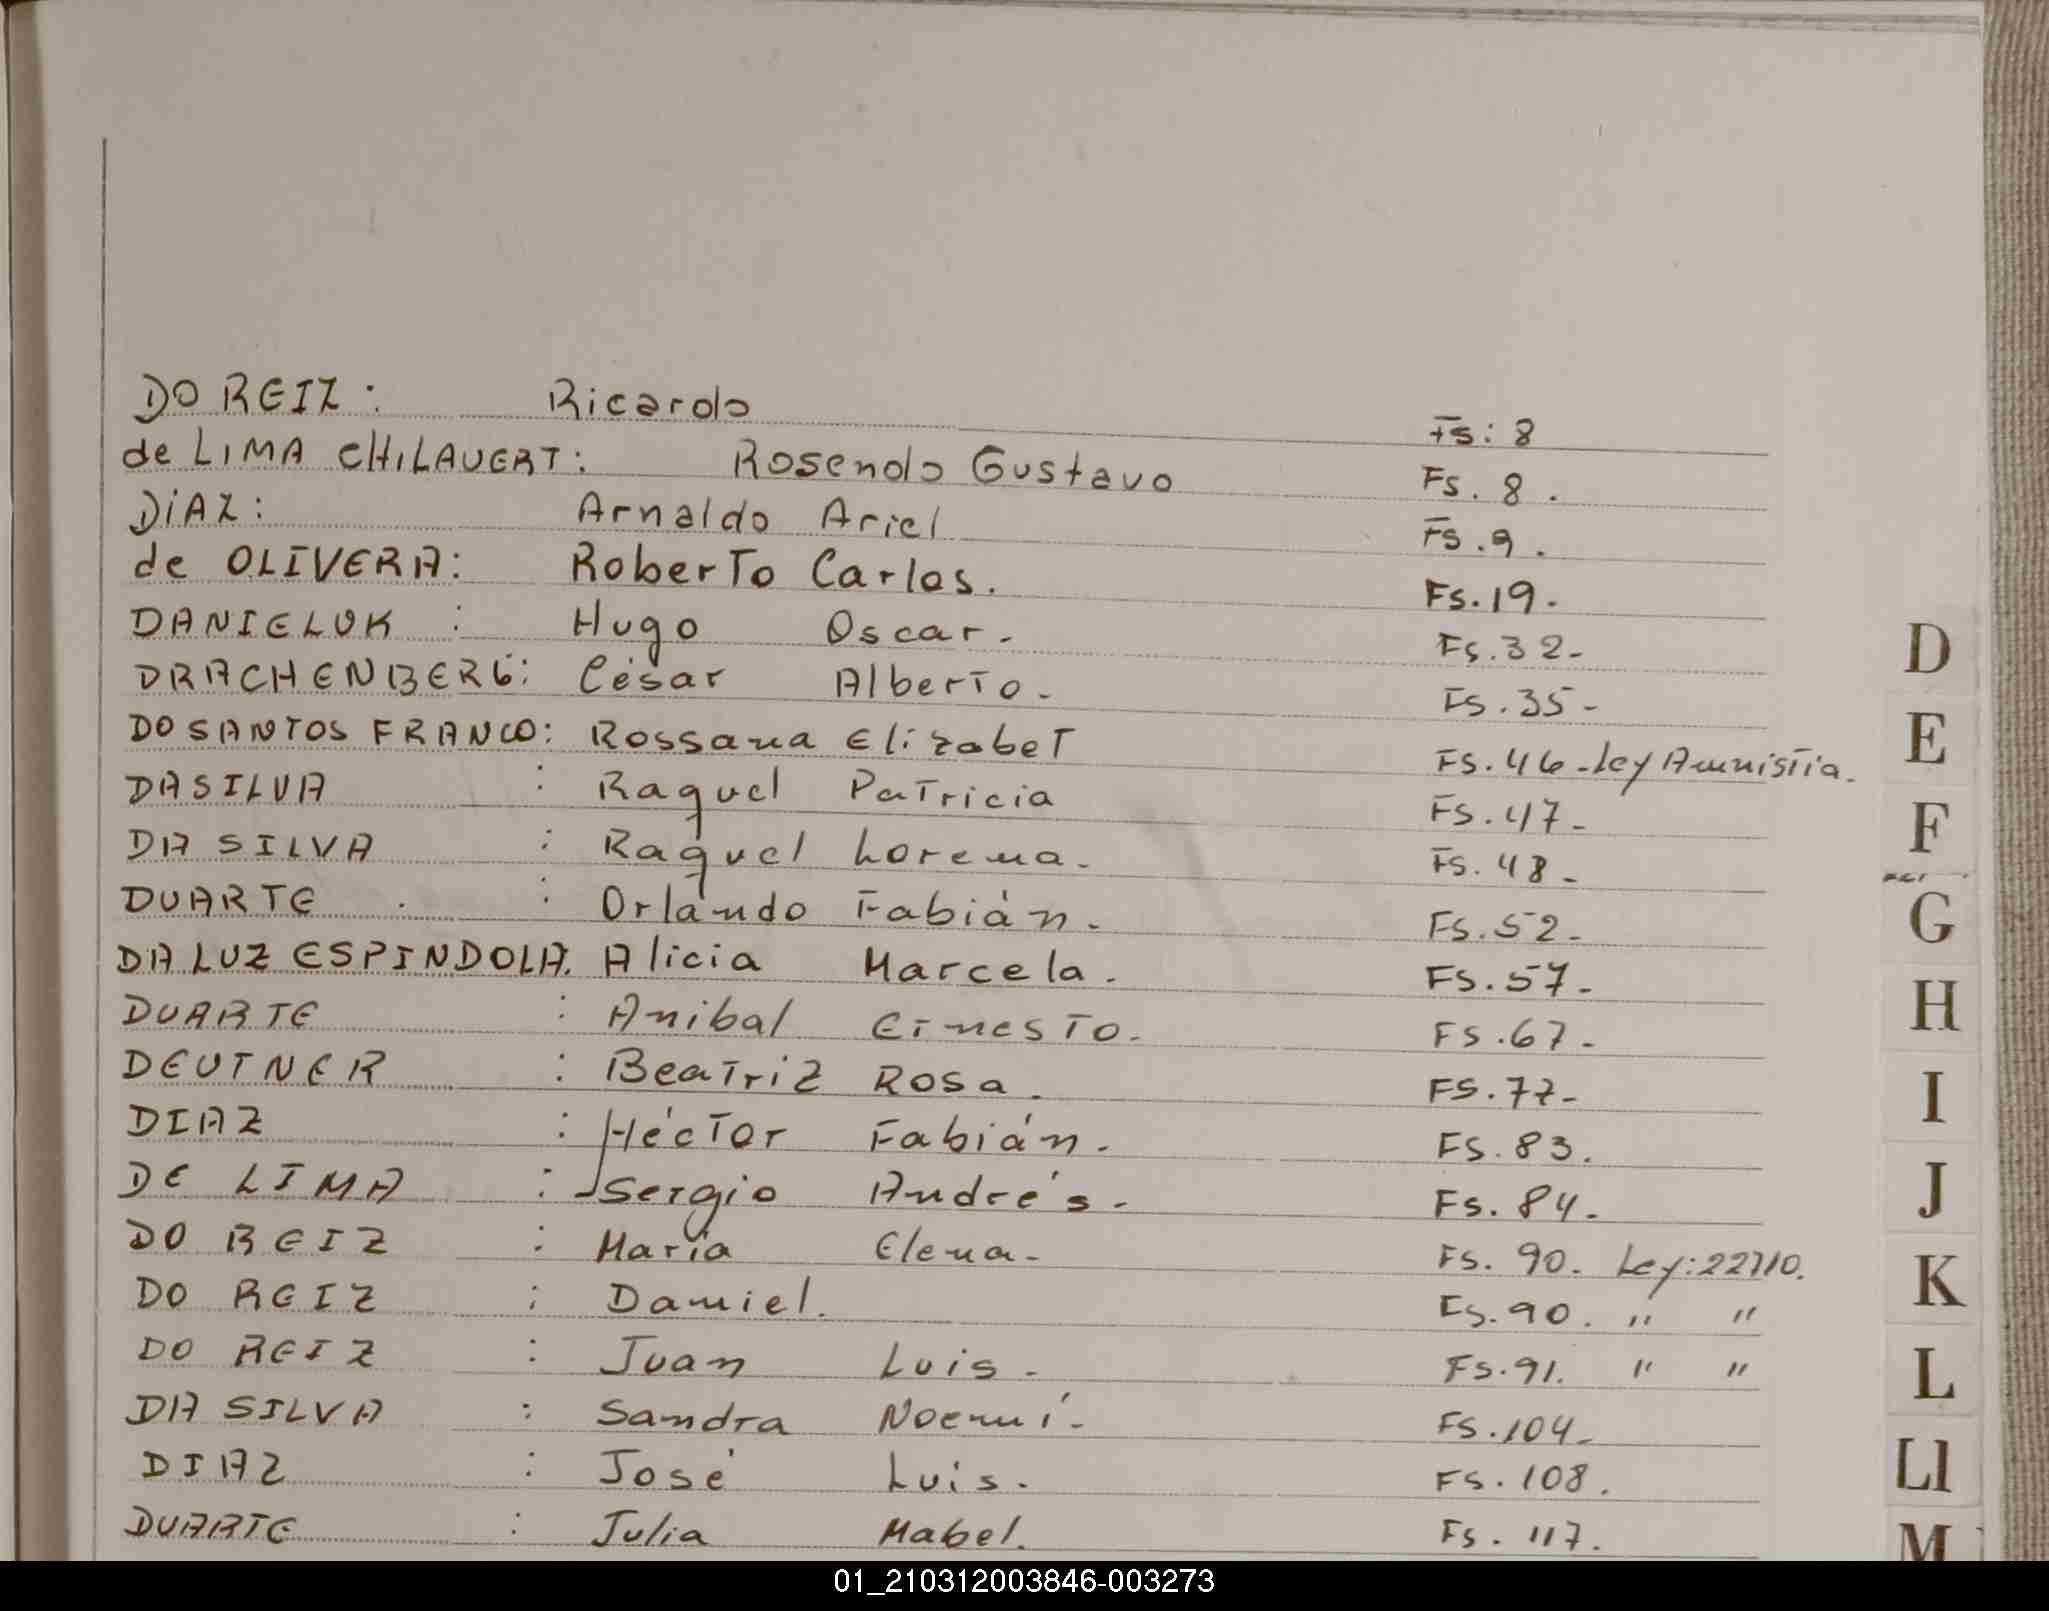 DO REIZ: Ricardo Fs: 8
de LIMA CHILAVERT: Rosendo Gustavo Fs. 8.
DiAZ: Arnaldo Ariel Fs. 9.
de OLIVERA: Roberto Carlos. Fs. 19.
DANIELUK : Hugo Oscar. Fs. 32-
DRACHENBERG: César Alberto. Fs. 35-
DO SANTOS FRANCO: Rossana Elizabet Fs. 46-Ley Amnistia.
DASILVA : Raquel Patricia Fs. 47-
DA SILVA : Raquel Lorena. Fs. 48-
DUARTE : Orlando Fabián. Fs. 52-
DA LUZ ESPINDOLA. Alicia Marcela. Fs. 57-
DUARTE : Anibal Ernesto. Fs. 67-
DEUTNER : Beatriz Rosa. FS. 77-
DIAZ : Héctor Fabián. FS. 83.
DE LIMA : Sergio Andrés. Fs. 84.
DO REIZ : María Elena. Fs. 90. Ley: 22710.
DO REIZ : Daniel. Fs. 90. " "
DO REIZ : Juan Luis. Fs. 91. " "
DA SILVA : Sandra Noemí. Fs. 104-
DIAZ : José Luis. Fs. 108.
DUARTE : Julia Mabel. Fs. 117.
D
E
F
G
H
I
J
K
L
Ll
M
01_210312003846-003273